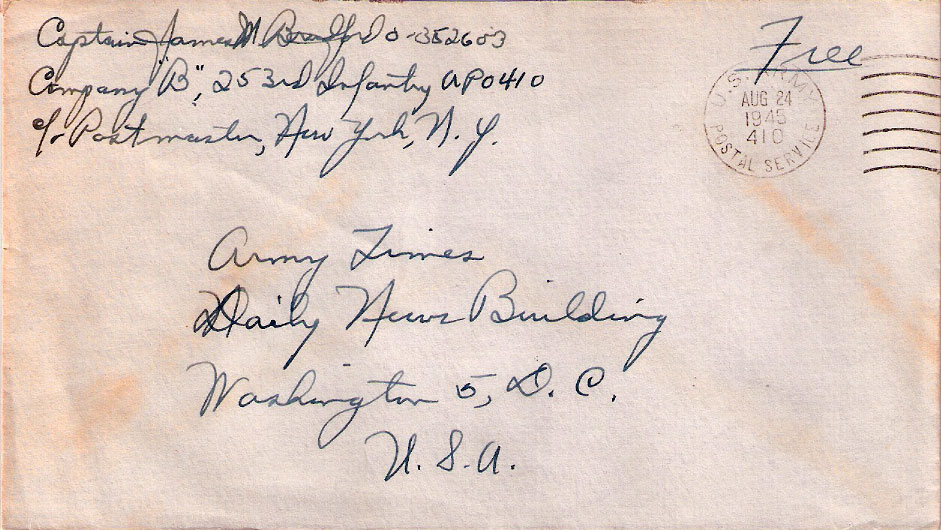 Captain James M Bradford O-352603
Company "B", 253rd Infantry APO 410
c/o Postmaster, New York, N. Y.
Free
U.S. ARMY
AUG 24
1945
410
POSTAL SERVICE
Army Times
Daily News Building
Washington 5, D. C.
U. S. A.